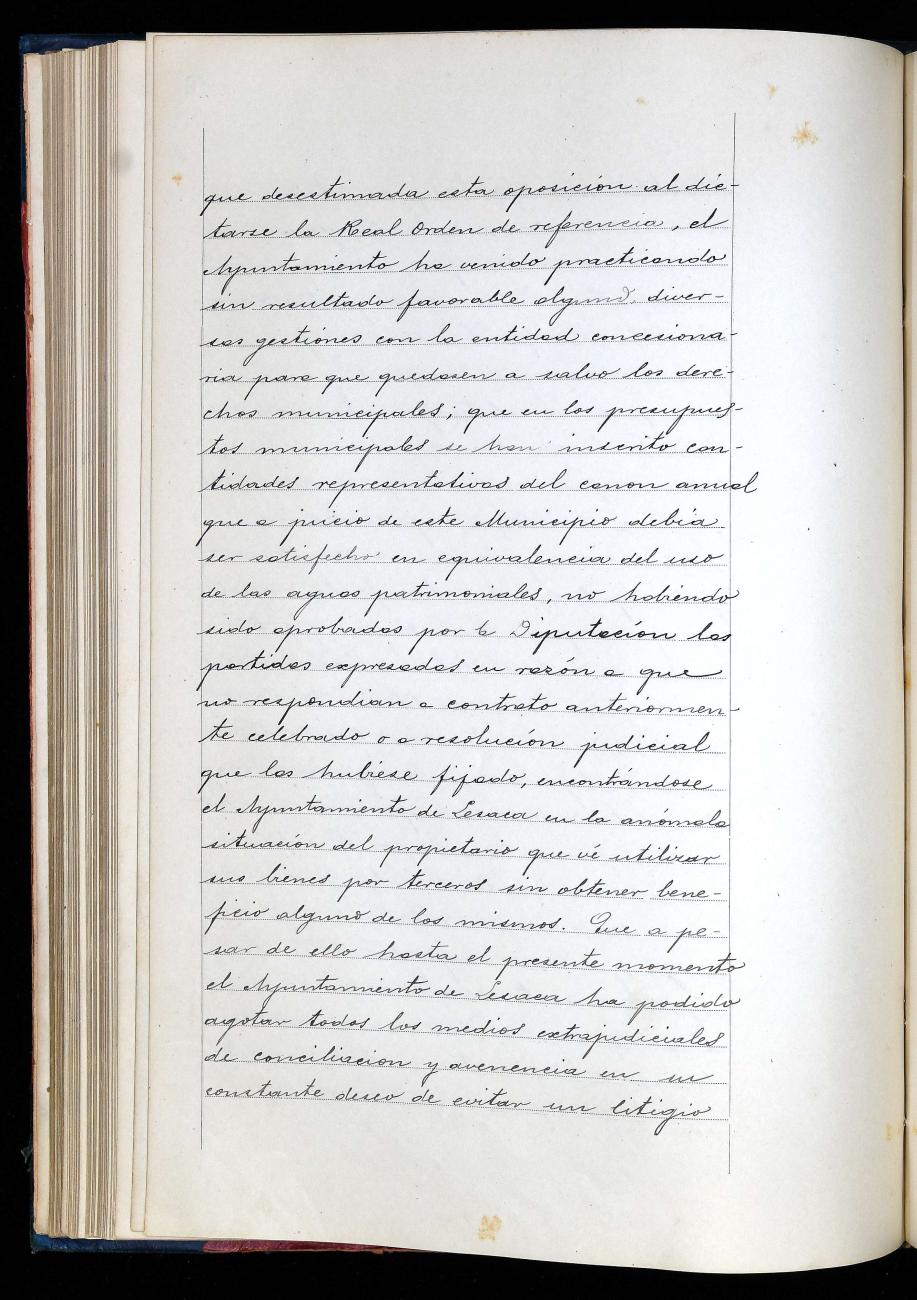 que desestimada esta oposición al dic-
tarse la Real Orden de referencia, el
Ayuntamiento ha venido practicando
sin resultado favorable alguno, diver-
sas gestiones con la entidad concesiona-
ria para que quedasen a salvo los dere-
chos municipales; que en los presupues-
tos municipales se han inscrito can-
tidades representativas del canon anual
que a juicio de este Municipio debía
ser satisfecho en equivalencia del uso
de las aguas patrimoniales, no habiendo
sido aprobadas por la Diputación las
partidas expresadas en razón a que
no respondian a contrato anteriormen-
te celebrado o a resolución judicial
que las hubiese fijado, encontrándose
el Ayuntamiento de Lesaca en la anómala
situación del propietario que vé utilizar
sus bienes por terceros sin obtener bene-
ficio alguno de los mismos. Que a pe-
sar de ello hasta el presente momento
el Ayuntamiento de Lesaca ha podido
agotar todos los medios extrajudiciales
de conciliacion y avenencia en su
constante deseo de evitar un litigio